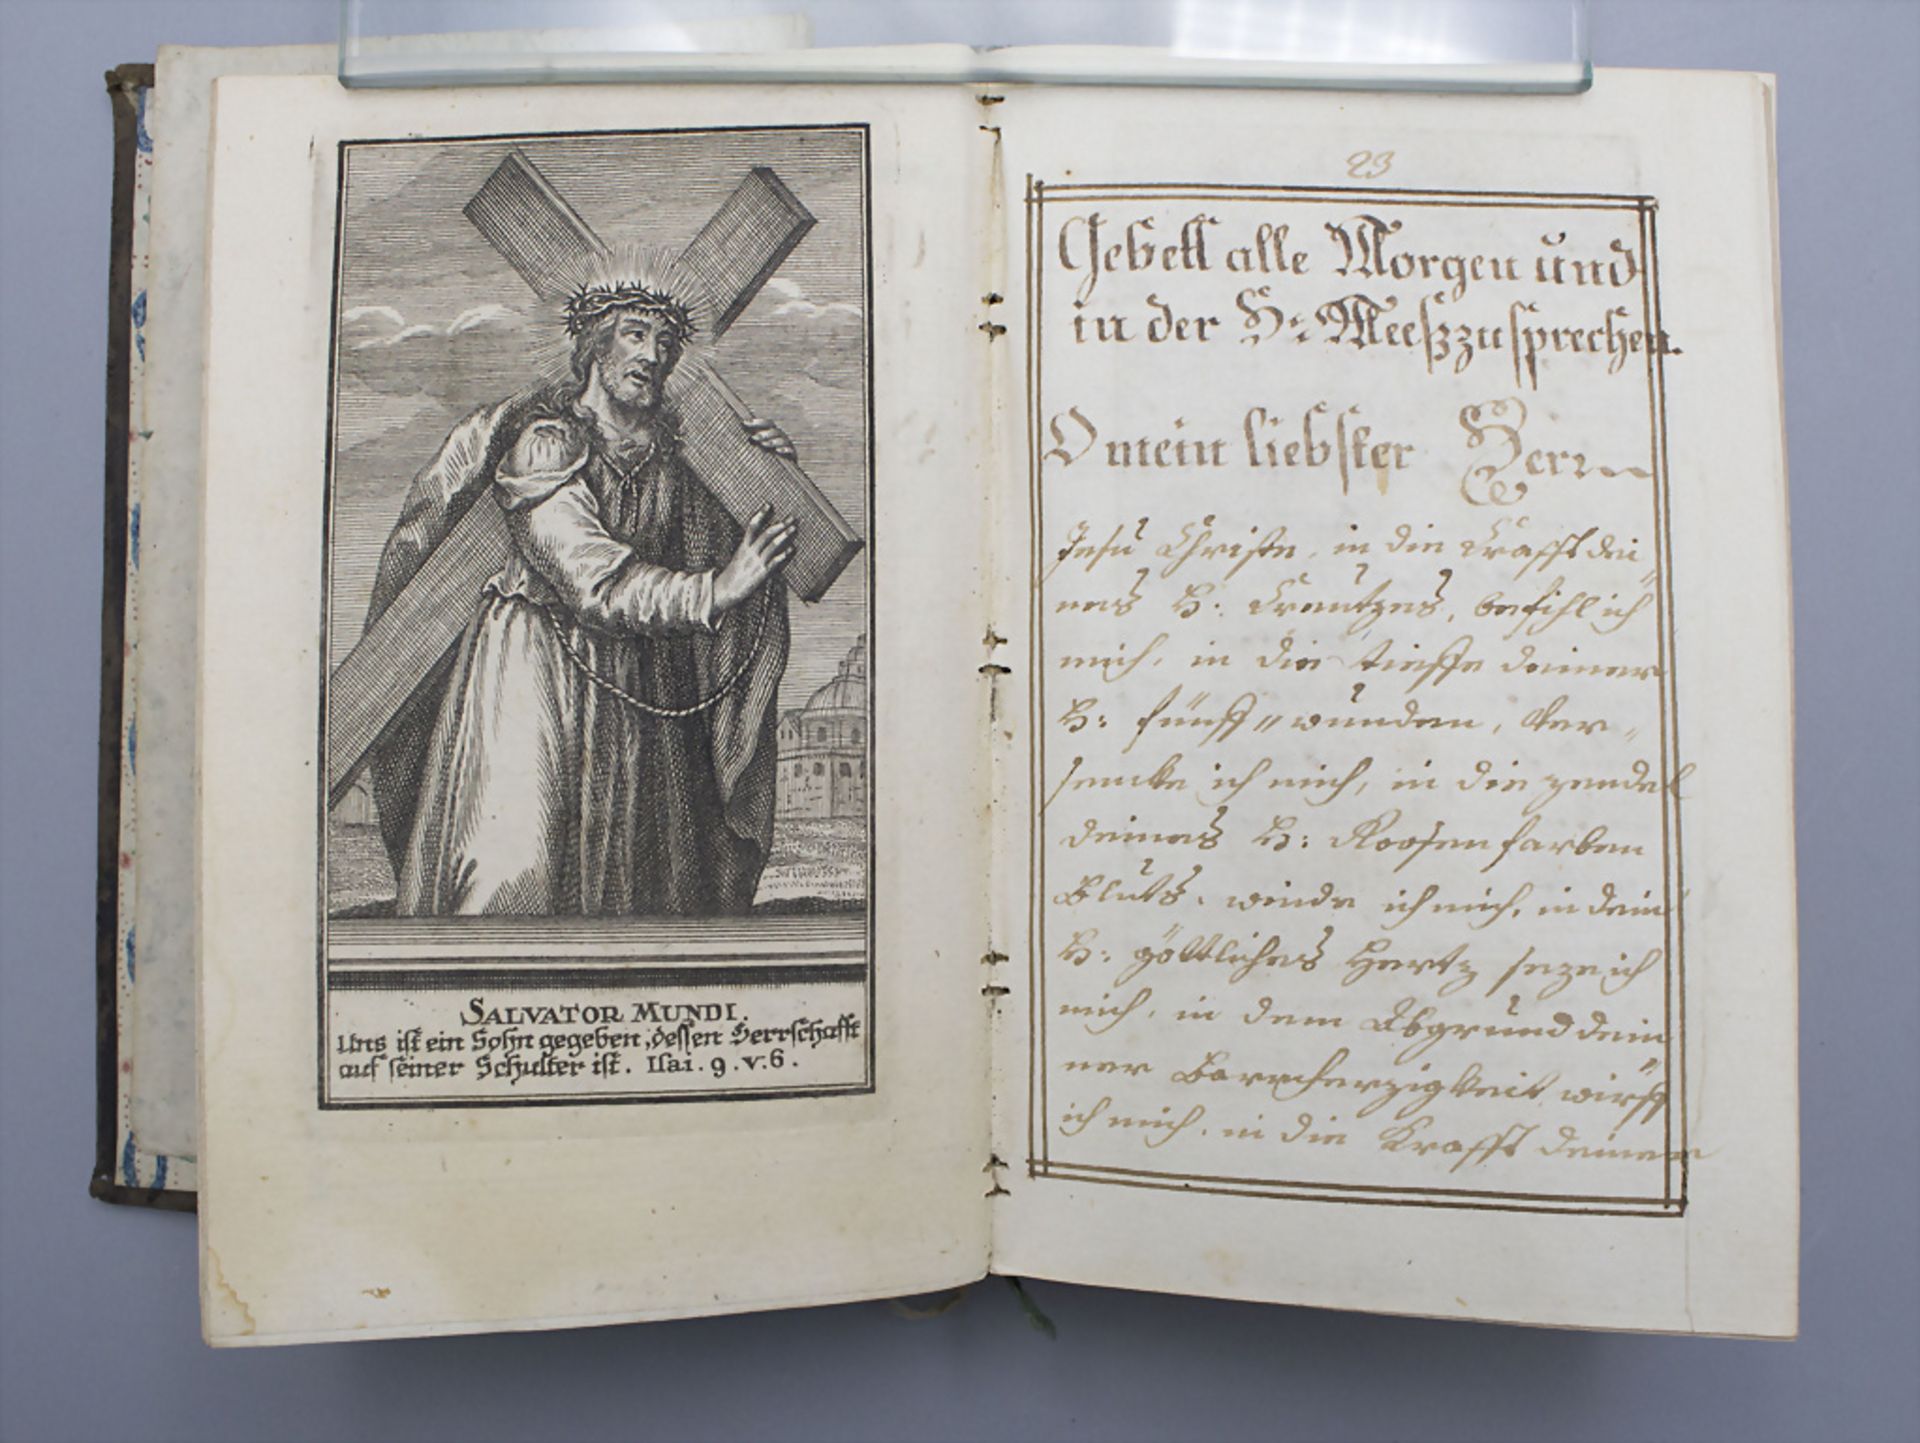 SALVATOR MUNDI.
Uns ist ein Sohn gegeben, dessen Herrschafft
auf seiner Schulter ist. Isai. 9. v. 6.
23
Gebett alle Morgen und
in der H: Meeß zu sprechen.
O mein liebster Herr
Jesu Christe, in die Crafft dei„
nes H: Creutzes, befihl ich
mich, in die tieffe deiner
H: fünff„ wunden, ver„
sencke ich mich, in die
deines H: Roosenfarben
Bluts, winde ich mich, in dein
H: göttliches Hertz seze ich
mich, in dem Abgrund dei„
ner Barmherzigkeit wirff
ich mich, in die Krafft deiner